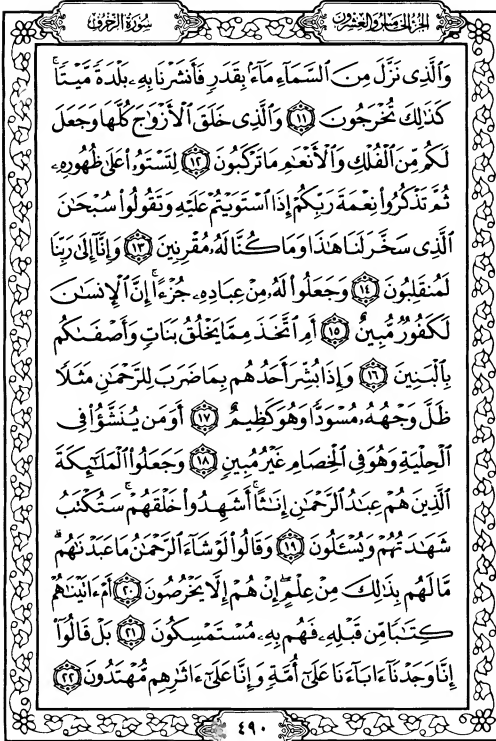 الجزء الخامس والعشرون
سورة الزخرف
وَالَّذِى نَزَّلَ مِنَ السَّمَآءِ مَآءَۢ بِقَدَرٖ فَأَنشَرۡنَا بِهِۦ بَلۡدَةٗ مَّيۡتٗاۚ
كَذَٰلِكَ تُخۡرَجُونَ ١١ وَالَّذِى خَلَقَ الۡأَزۡوَٰجَ كُلَّهَا وَجَعَلَ
لَكُم مِّنَ الۡفُلۡكِ وَالۡأَنۡعَٰمِ مَا تَرۡكَبُونَ ١٢ لِتَسۡتَوُۥاْ عَلَىٰ ظُهُورِهِۦ
ثُمَّ تَذۡكُرُواْ نِعۡمَةَ رَبِّكُمۡ إِذَا اسۡتَوَيۡتُمۡ عَلَيۡهِ وَتَقُولُواْ سُبۡحَٰنَ
الَّذِى سَخَّرَ لَنَا هَٰذَا وَمَا كُنَّا لَهُۥ مُقۡرِنِينَ ١٣ وَإِنَّآ إِلَىٰ رَبِّنَا
لَمُنقَلِبُونَ ١٤ وَجَعَلُواْ لَهُۥ مِنۡ عِبَادِهِۦ جُزۡءًاۚ إِنَّ الۡإِنسَٰنَ
لَكَفُورٞ مُّبِينٌ ١٥ أَمِ اتَّخَذَ مِمَّا يَخۡلُقُ بَنَاتٖ وَأَصۡفَىٰكُم
بِالۡبَنِينَ ١٦ وَإِذَا بُشِّرَ أَحَدُهُم بِمَا ضَرَبَ لِلرَّحۡمَٰنِ مَثَلٗا
ظَلَّ وَجۡهُهُۥ مُسۡوَدّٗا وَهُوَ كَظِيمٌ ١٧ أَوَمَن يُنَشَّؤُاْ فِى
الۡحِلۡيَةِ وَهُوَ فِى الۡخِصَامِ غَيۡرُ مُبِينٖ ١٨ وَجَعَلُواْ الۡمَلَٰٓئِكَةَ
الَّذِينَ هُمۡ عِبَٰدُ الرَّحۡمَٰنِ إِنَٰثًاۚ أَشَهِدُواْ خَلۡقَهُمۡۚ سَتُكۡتَبُ
شَهَٰدَتُهُمۡ وَيُسۡـَٔلُونَ ١٩ وَقَالُواْ لَوۡ شَآءَ الرَّحۡمَٰنُ مَا عَبَدۡنَٰهُمۗ
مَّا لَهُم بِذَٰلِكَ مِنۡ عِلۡمٍۖ إِنۡ هُمۡ إِلَّا يَخۡرُصُونَ ٢٠ أَمۡ ءَاتَيۡنَٰهُمۡ
كِتَٰبٗا مِّن قَبۡلِهِۦ فَهُم بِهِۦ مُسۡتَمۡسِكُونَ ٢١ بَلۡ قَالُوٓاْ
إِنَّا وَجَدۡنَآ ءَابَآءَنَا عَلَىٰٓ أُمَّةٖ وَإِنَّا عَلَىٰٓ ءَاثَٰرِهِم مُّهۡتَدُونَ ٢٢
٤٩٠